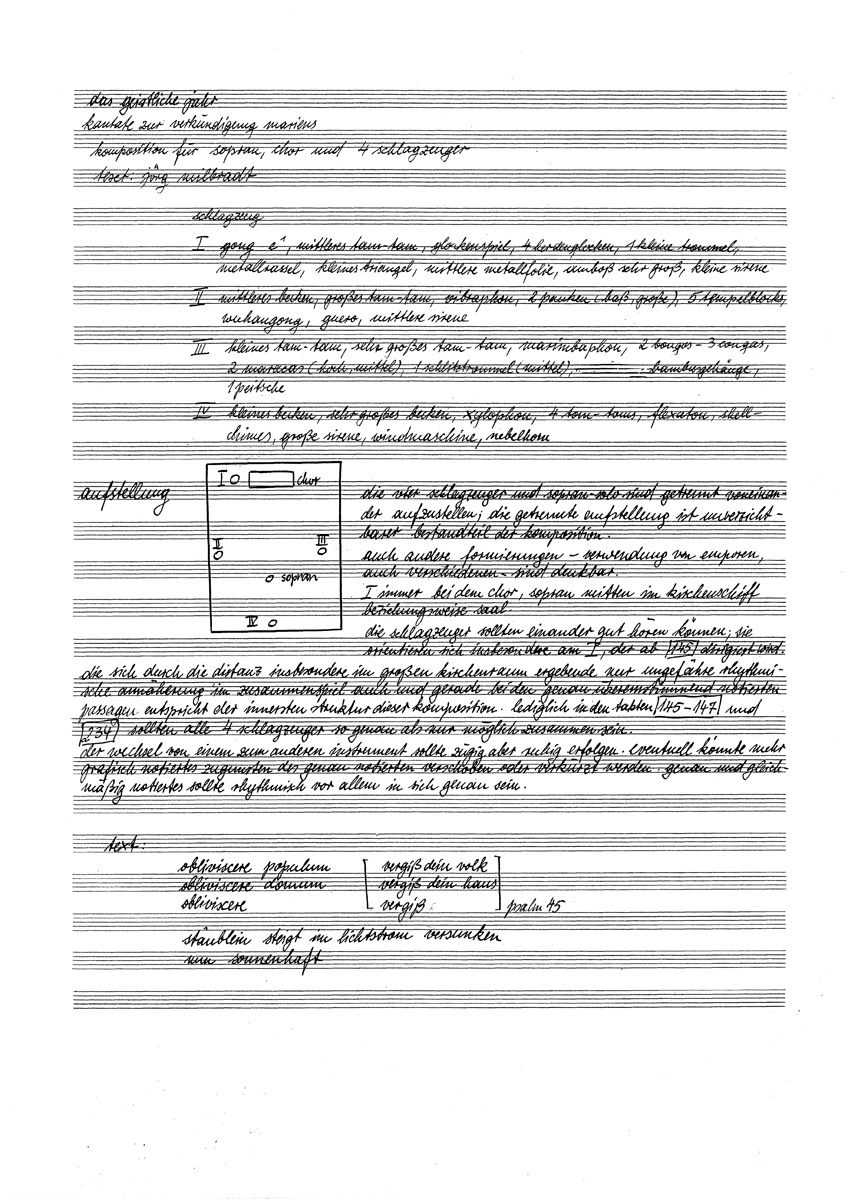 das geistliche jahr
kantate zur verkündigung mariens
komposition für sopran, chor und 4 schlagzeuger
text: jörg milbradt
schlagzeug
I gong e¹, mittleres tam-tam, glockenspiel, 4 herdenglocken, 1 kleine trommel,
metallrassel, kleines triangel, mittlere metallfolie, amboß sehr groß, kleine sirene
II mittleres becken, großes tam-tam, vibraphon, 2 pauken (baß, große), 5 tempelblocks,
wuhangong, guero, mittlere sirene
III kleines tam-tam, sehr großes tam-tam, marimbaphon, 2 bongos - 3 congas,
2 maracas (hoch, mittel), 1 schlitztrommel (mittel), bambusgehänge,
1 peitsche
IV kleines becken, sehr großes becken, xylophon, 4 tom-toms, flexaton, shell-
chimes, große sirene, windmaschine, nebelhorn
aufstellung
I chor
II III
sopran
IV
die vier schlagzeuger und sopran-solo sind getrennt voneinan-
der aufzustellen; die getrennte aufstellung ist unverzicht-
barer bestandteil der komposition.
auch andere formierungen - verwendung von emporen,
auch verschiedenen - sind denkbar.
I immer bei dem chor, sopran mitten im kirchenschiff
beziehungsweise saal
die schlagzeuger sollten einander gut hören können; sie
orientieren sich insbesondere am I, der ab 145 dirigiert wird.
die sich durch die distanz insbesondere im großen kirchenraum ergebende nur ungefähre rhythmi-
sche annäherung im zusammenspiel auch und gerade bei den genau übereinstimmend notierten
passagen entspricht der innersten struktur dieser komposition. lediglich in den takten 145-147 und
234 sollten alle 4 schlagzeuger so genau als nur möglich zusammen sein.
der wechsel von einem zum anderen instrument sollte zügig aber ruhig erfolgen. eventuell könnte mehr
grafisch notiertes zugunsten des genau notierten verschoben oder verkürzt werden. genau und gleich-
mäßig notiertes sollte rhythmisch vor allem in sich genau sein.
text:
obliviscere populum vergiß dein volk
obliviscere domum vergiß dein haus
obliviscere vergiß psalm 45
stäublein steigt im lichtstrom versunken
nun sonnenhaft